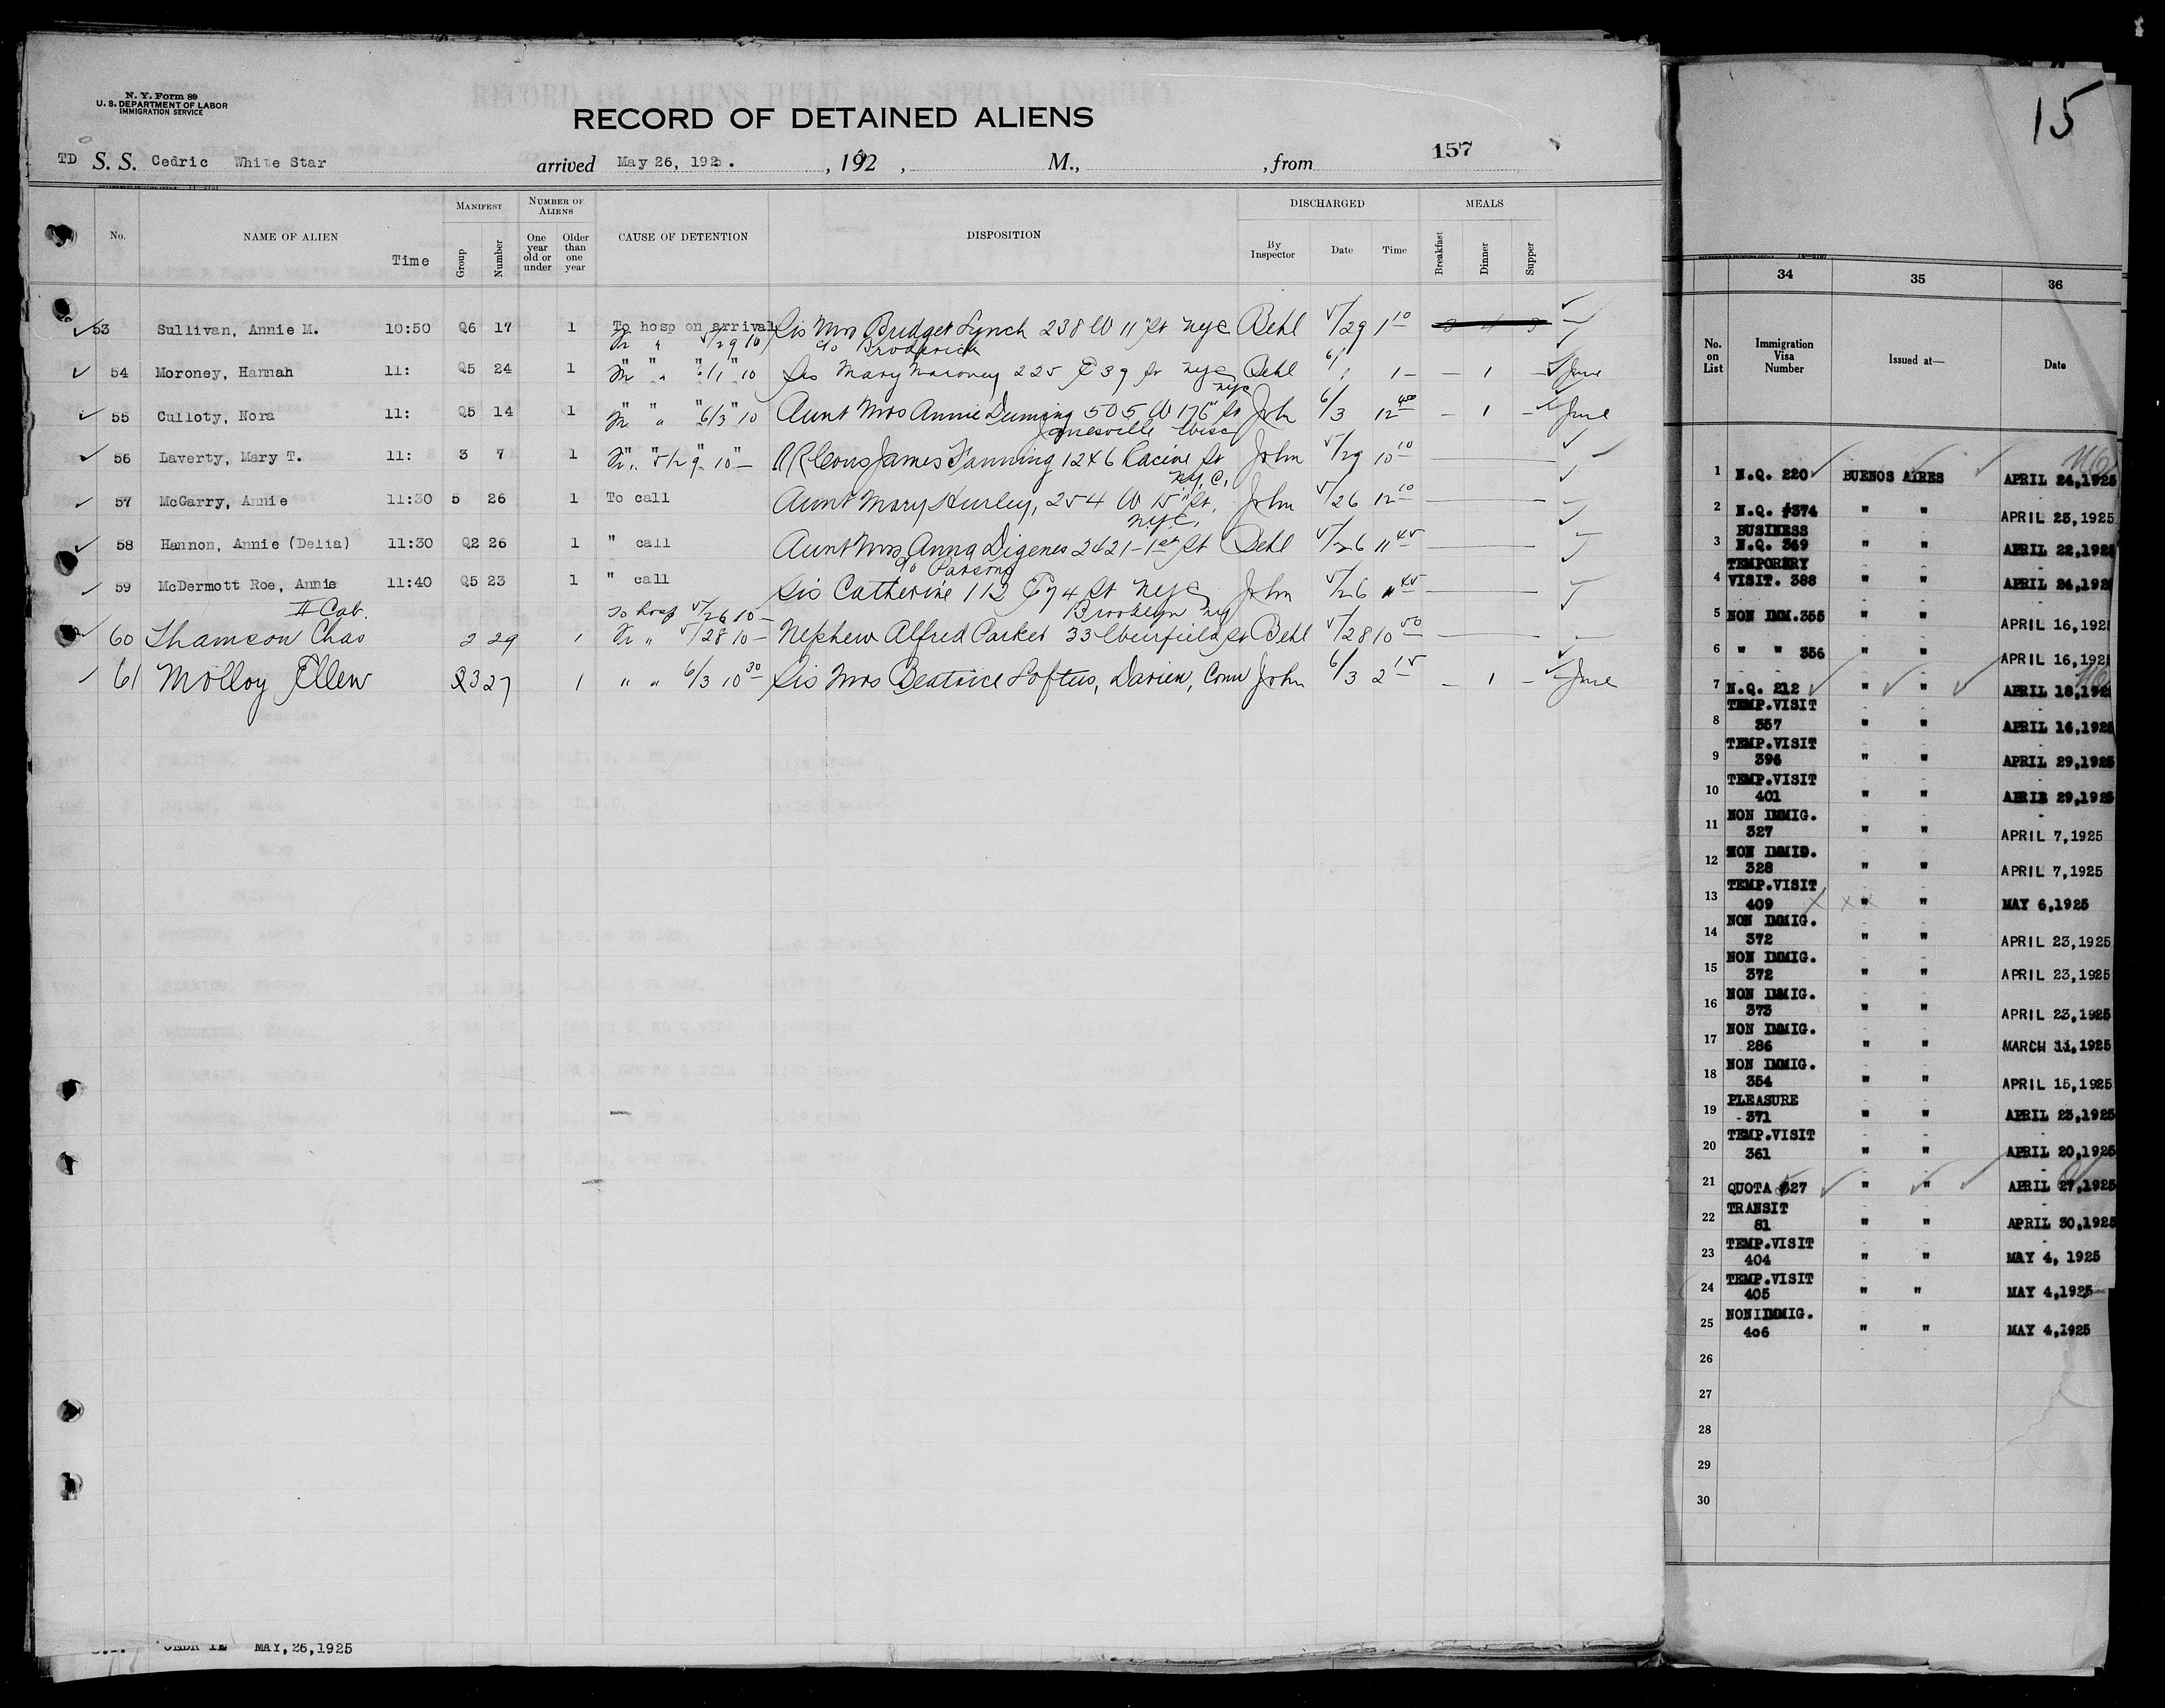 N. Y. Form 89
U. S. DEPARTMENT OF LABOR
IMMIGRATION SERVICE
RECORD OF DETAINED ALIENS
TD S. S. Cedric White Star arrived May 26, 192 . , 192 , M., , from 157
No. NAME OF ALIEN Time MANIFEST Group Number NUMBER OF ALIENS One year old or under Older than one year CAUSE OF DETENTION DISPOSITION DISCHARGED By Inspector Date Time MEALS Breakfast Dinner Supper
53 Sullivan, Annie M. 10:50 Q6 17 1 To hosp on arrival Sis Mrs Bridget Lynch 238 W 11" St NYC Behl 5/29 1 10
" 5/29 10 c/o Broderick
54 Moroney, Hannah 11: Q5 24 1 " " " 6/1 10 Sis Mary Moroney 225 E 39 St NYC Behl 6/1 1 - - 1 - June
NYC
55 Culloty, Nora 11: Q5 14 1 " " " 6/3 10 Aunt Mrs Annie Deming 505 W 176" St John 6/3 12 40 - 1 - June
Janesville Wisc
56 Laverty, Mary T. 11: 3 7 1 " " 5/29 10 - RR Cous James Fanning 1246 Racine St John 5/29 10 10
N.Y.C.
57 McGarry, Annie 11:30 5 26 1 To call Aunt Mary Hurley, 254 W 15" St, John 5/26 12 10
NYC,
58 Hannon, Annie (Delia) 11:30 Q2 26 1 " call Aunt Mrs Anna Digenes 2421-1st St Behl 5/26 11 45
c/o Parsons
59 McDermott Roe, Annie 11:40 Q5 23 1 " call Sis Catherine 112 E 74 St NYC John 5/26 11 45
II Cab. To hosp 5/26 10 - Brooklyn NY
60 Thamson Chas 2 29 1 " 5/28 10 - Nephew Alfred Parker 33 St Behl 5/28 10 50
61 Molloy Ellen 23 27 1 " " 6/3 10 30 Sis Mrs Beatrice Loftus, Darien, Conn John 6/3 2 15 - 1 - June
MAY,26,1925
15
34 35 36
No. on List Immigration Visa Number Issued at— Date
1 N.Q. 220 BUENOS AIRES APRIL 24,1925
2 N.Q. #374 " " APRIL 23,1925
BUSINESS
3 N.Q. 369 " " APRIL 22,192
TEMPORERY
4 VISIT. 388 " " APRIL 24,192
5 NON IMM.355 " " APRIL 16,192
6 " " 356 " " APRIL 16,192
7 N.Q. 212 " " APRIL 18,192
TEMP.VISIT
8 357 " " APRIL 16,1925
TEMP.VISIT
9 396 " " APRIL 29,1925
TEMP.VISIT
10 401 " " 29,1925
NON IMMIG.
11 327 " " APRIL 7,1925
NON IMMIG.
12 328 " " APRIL 7,1925
TEMP.VISIT
13 409 " " MAY 6,1925
NON IMMIG.
14 372 " " APRIL 23,1925
NON IMMIG.
15 372 " " APRIL 23,1925
NON IMMIG.
16 373 " " APRIL 23,1925
NON IMMIG.
17 286 " " MARCH 31,1925
NON IMMIG.
18 354 " " APRIL 15,1925
PLEASURE
19 371 " " APRIL 23,1925
TEMP.VISIT
20 361 " " APRIL 20,1925
21 QUOTA 327 " " APRIL 27,1925
TRANSIT
22 81 " " APRIL 30,1925
TEMP.VISIT
23 404 " " MAY 4, 1925
TEMP.VISIT
24 405 " " MAY 4,1925
NONIMMIG.
25 406 " " MAY 4,1925
26
27
28
29
30